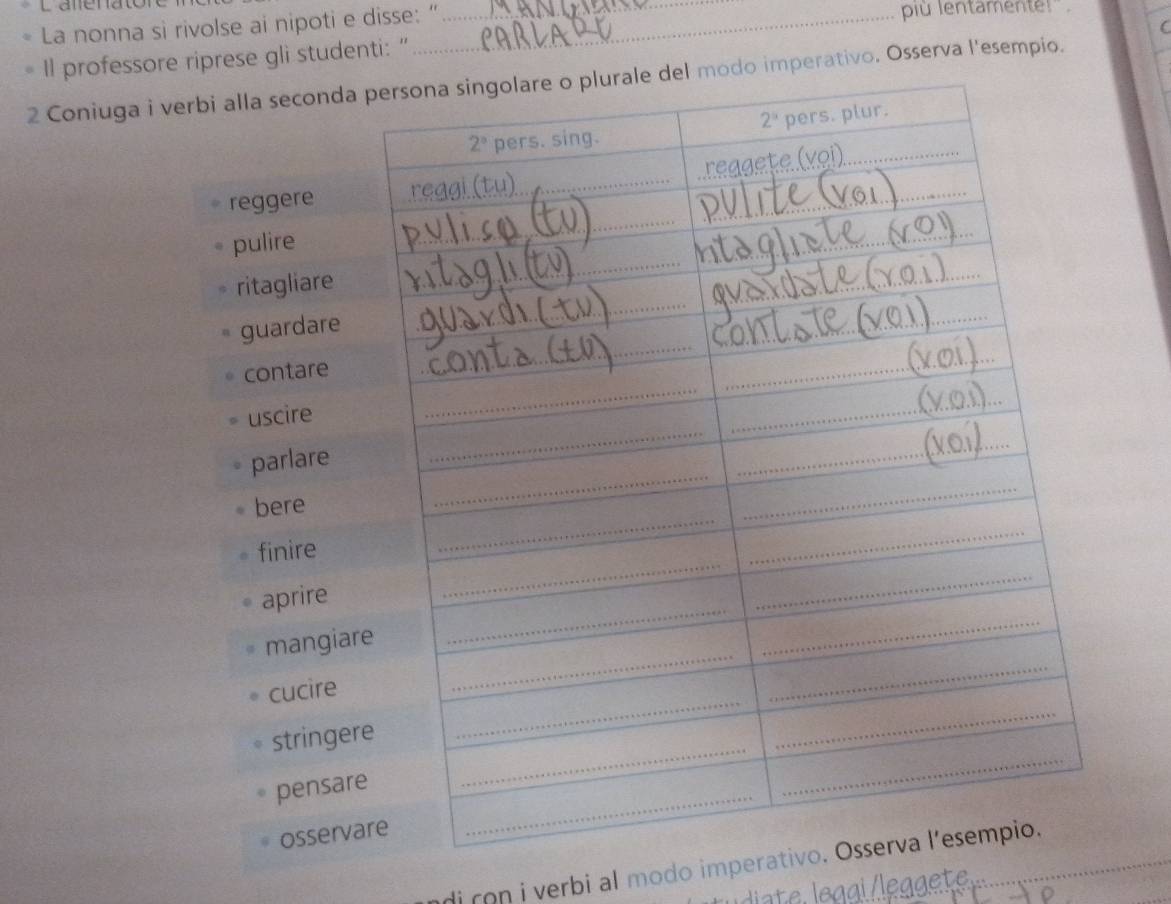 La nonna si rivolse ai nipoti e disse: "
Il professore riprese gli studenti: " PARLARE più lentamente!".
2 Coniuga i verbi alla seconda persona singolare o plurale del modo imperativo. Osserva l'esempio.
2ª pers. sing. 2ª pers. plur.
reggere reggi (tu) reggete (voi)
pulire pulisa (tu) pulite (voi)
ritagliare ritagli (tu) ritagliate (voi)
guardare guardi (tu) guardate (voi)
contare conta (tu) contate (voi)
uscire (voi)
parlare (voi)
bere (voi)
finire
aprire
mangiare
cucire
stringere
pensare
osservare
con i verbi al modo imperativo. Osserva l'esempio.
leggi/leggete